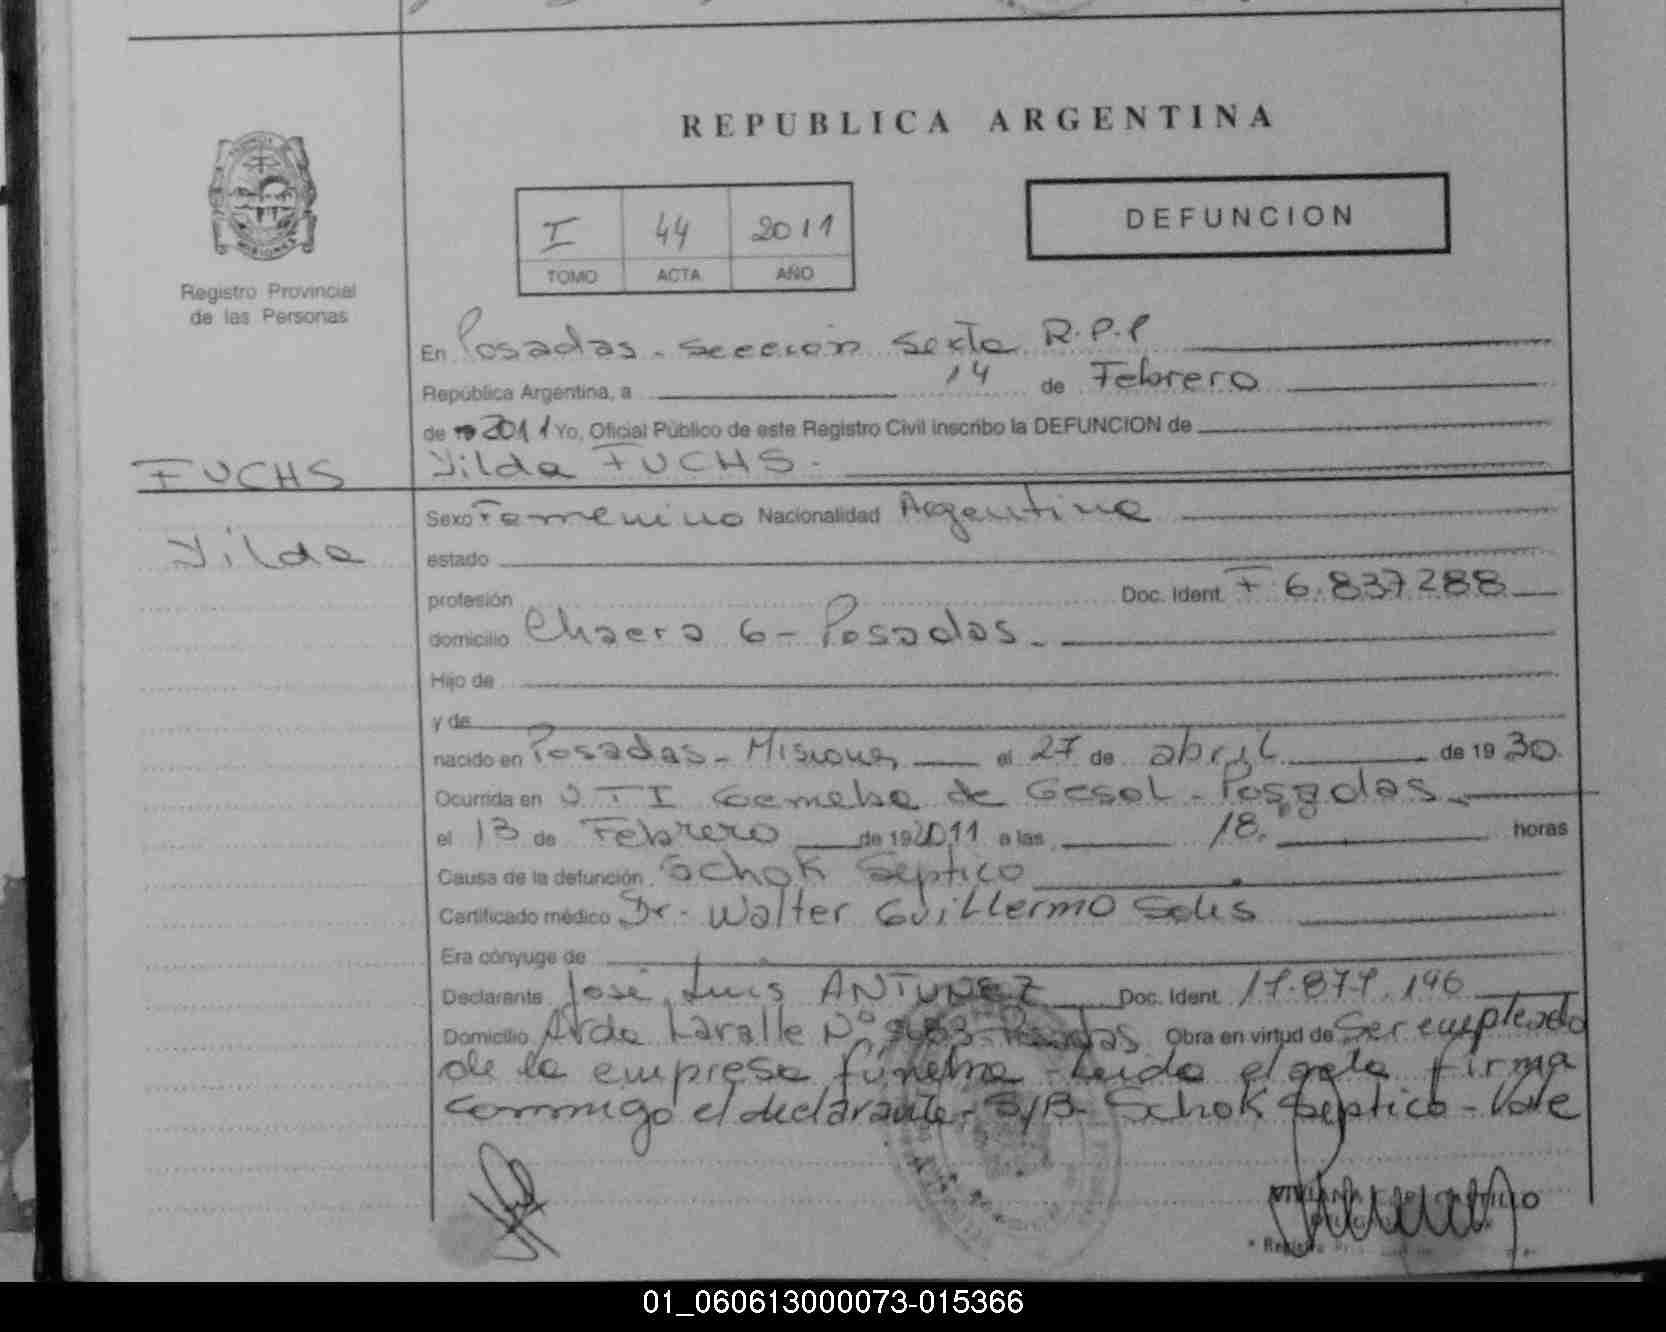 REPUBLICA ARGENTINA
I 44 2011
TOMO ACTA AÑO
DEFUNCION
Registro Provincial
de las Personas
En Posadas - Sección Sexta R.P.P
República Argentina, a 14 de Febrero
de 2011 Yo, Oficial Público de este Registro Civil inscribo la DEFUNCION de
FUCHS
Yilda FUCHS.
Yilda
Sexo Femenino Nacionalidad Argentina
estado
profesión Doc. Ident. F 6.837288
domicilio Chacra 6 - Posadas.
Hijo de
y de
nacido en Posadas - Misiones el 27 de abril de 19 30.
Ocurrida en UTI de Posadas
el 13 de Febrero de 19 2011 a las 18. horas
Causa de la defunción Schok Septico
Certificado médico Dr. Walter Guillermo Solis
Era cónyuge de
Declarante José Luis ANTUNEZ Doc. Ident.
Domicilio Avda Lavalle Nº Posadas Obra en virtud de Ser empleado
de la empresa fúnebre - Leida el acta firma
conmigo el declarante. S/B. Schok Septico - Vale
01_060613000073-015366